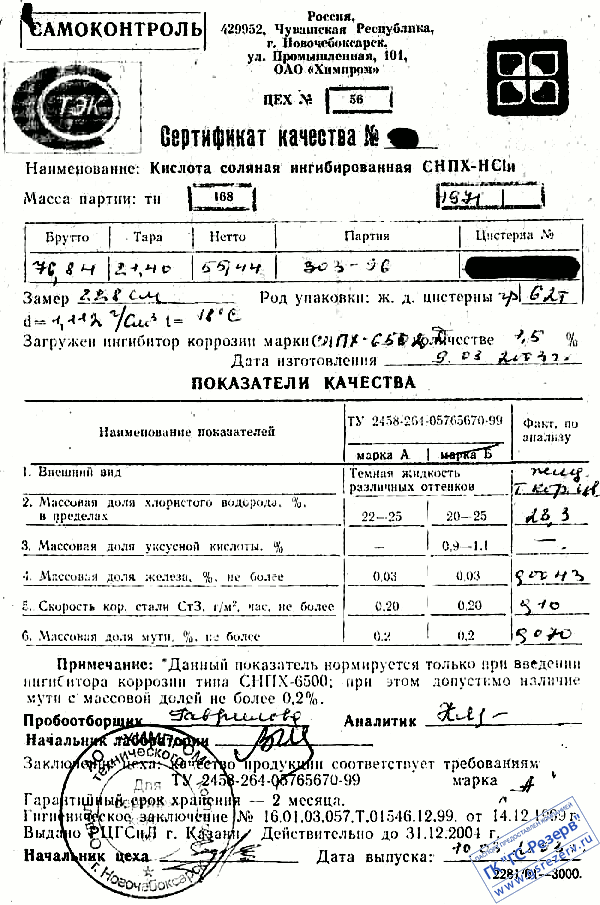 САМОКОНТРОЛЬ
Россия,
429952, Чувашская Республика,
г. Новочебоксарск,
ул. Промышленная, 101,
ОАО «Химпром»
ТЭК
ЦЕХ № 56
Сертификат качества №
Наименование: Кислота соляная ингибированная СНПХ-НСlи
Масса партии: тн 168
Брутто Тара Нетто Партия Цистерна №
76,84 21,40 55,44 303-96
Замер 228 см Род упаковки: ж. д. цистерны гр 62т
d= 1,112 г/см³ t= 18°С
Загружен ингибитор коррозии марки количестве 1,5 %
Дата изготовления 9.03
ПОКАЗАТЕЛИ КАЧЕСТВА
Наименование показателей ТУ 2458-264-05765670-99 Факт. по анализу
марка А марка Б
1. Внешний вид Темная жидкость различных оттенков
2. Массовая доля хлористого водорода, %, в пределах 22—25 20—25 23,3
3. Массовая доля уксусной кислоты, % — 0,9—1.1 —
4. Массовая доля железа, %, не более 0,03 0,03
5. Скорость кор. стали Ст3, г/м², час, не более 0,20 0,20
6. Массовая доля мути, %, не более 0,2 0,2
Примечание: *Данный показатель нормируется только при введении
ингибитора коррозии типа СНПХ-6500; при этом допустимо наличие
мути с массовой долей не более 0,2%.
Пробоотборщик Гаврилова Аналитик
Начальник лаборатории
Заключение цеха: качество продукции соответствует требованиям
ТУ 2458-264-05765670-99 марка А
Гарантийный срок хранения — 2 месяца.
Гигиеническое заключение № 16.01.03.057.Т.01546.12.99. от 14.12.1999г.
Выдано ЦГСэЛ г. Казани. Действительно до 31.12.2004 г.
Начальник цеха Дата выпуска: 10.03
2281/01—3000.
Для
г. Новочебоксарск
ПК "ГС-Резерв"
www.gsrezerv.ru